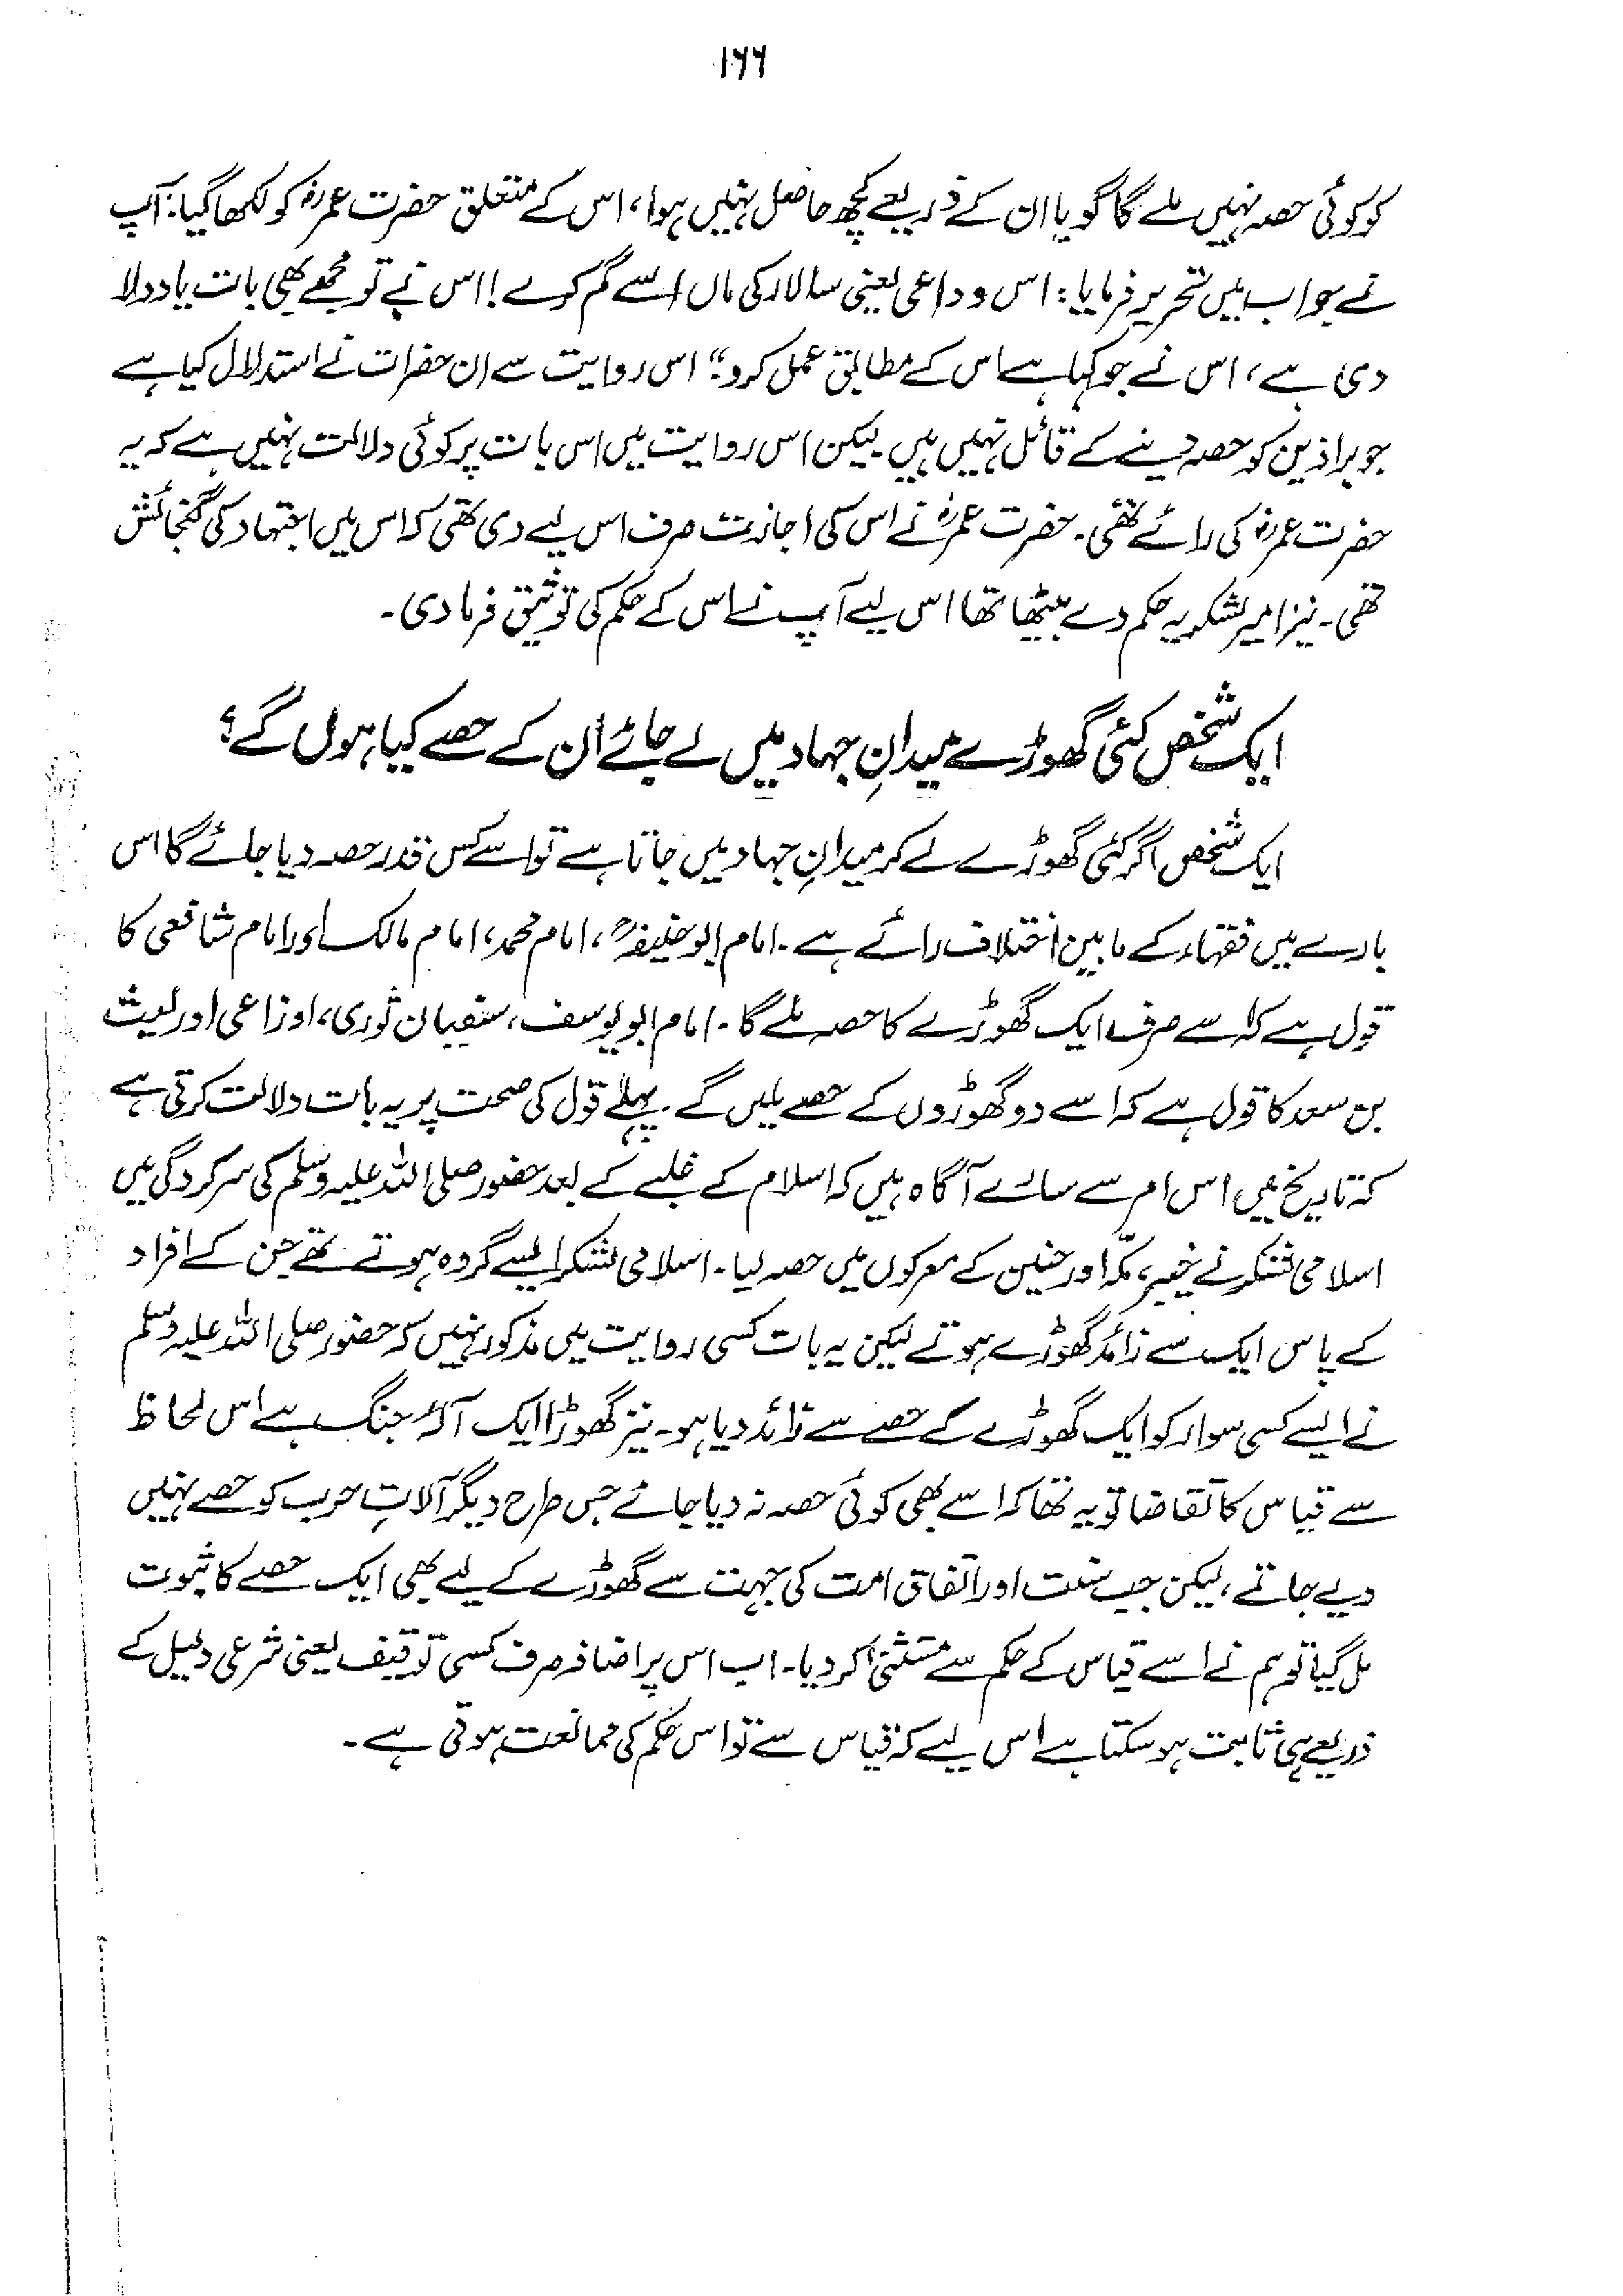 ۱۶۶
کو کوئی حصہ نہیں ملے گا گویا ان کے ذریعے کچھ حاصل نہیں ہوا، اس کے متعلق حضرت عمرؓ کو لکھا گیا: آپ
نے جواب میں تحریر فرمایا: اس وداعی یعنی سالار کی ماں اسے گم کرے! اس نے تو مجھے بھی بات یاد دلا
دی ہے، اس نے جو کہا ہے اس کے مطابق عمل کرو" اس روایت سے ان حضرات نے استدلال کیا ہے
جو براذین کو حصہ دینے کے قائل نہیں ہیں۔ لیکن اس روایت میں اس بات پر کوئی دلالت نہیں ہے کہ یہ
حضرت عمرؓ کی رائے تھی۔ حضرت عمرؓ نے اس کی اجازت صرف اس لیے دی تھی کہ اس میں اجتہاد کی گنجائش
تھی۔ نیز امیر لشکر یہ حکم دے بیٹھا تھا اس لیے آپ نے اس کے حکم کی توثیق فرما دی۔
ایک شخص کئی گھوڑے میدانِ جہاد میں لے جائے اُن کے حصے کیا ہوں گے؟
ایک شخص اگر کئی گھوڑے لے کر میدانِ جہاد میں جاتا ہے تو اسے کس قدر حصہ دیا جائے گا اس
بارے میں فقہاء کے مابین اختلاف رائے ہے۔ امام ابو حنیفہؒ، امام محمد، امام مالک اور امام شافعی کا
قول ہے کہ اسے صرف ایک گھوڑے کا حصہ ملے گا۔ امام ابو یوسف، سفیان ثوری، اوزاعی اور لیث
بن سعد کا قول ہے کہ اسے دو گھوڑوں کے حصے ملیں گے۔ پہلے قول کی صحت پر یہ بات دلالت کرتی ہے
کہ تاریخ میں اس امر سے سارے آگاہ ہیں کہ اسلام کے غلبے کے بعد حضور صلی اللہ علیہ وسلم کی سرکردگی میں
اسلامی لشکر نے خیبر، مکّہ اور حنین کے معرکوں میں حصہ لیا۔ اسلامی لشکر ایسے گروہ ہوتے تھے جن کے افراد
کے پاس ایک سے زائد گھوڑے ہوتے لیکن یہ بات کسی روایت میں مذکور نہیں کہ حضور صلی اللہ علیہ وسلم
نے ایسے کسی سوار کو ایک گھوڑے کے حصے سے زائد دیا ہو۔ نیز گھوڑا ایک آلۂ جنگ ہے اس لحاظ
سے قیاس کا تقاضا تو یہ تھا کہ اسے بھی کوئی حصہ نہ دیا جائے جس طرح دیگر آلاتِ حرب کو حصے نہیں
دیے جاتے، لیکن جب سنت اور اتفاق امت کی جہت سے گھوڑے کے لیے بھی ایک حصے کا ثبوت
مل گیا تو ہم نے اسے قیاس کے حکم سے مستثنیٰ کر دیا۔ اب اس پر اضافہ صرف کسی توقیف یعنی شرعی دلیل کے
ذریعے ہی ثابت ہو سکتا ہے اس لیے کہ قیاس سے تو اس حکم کی ممانعت ہوتی ہے۔